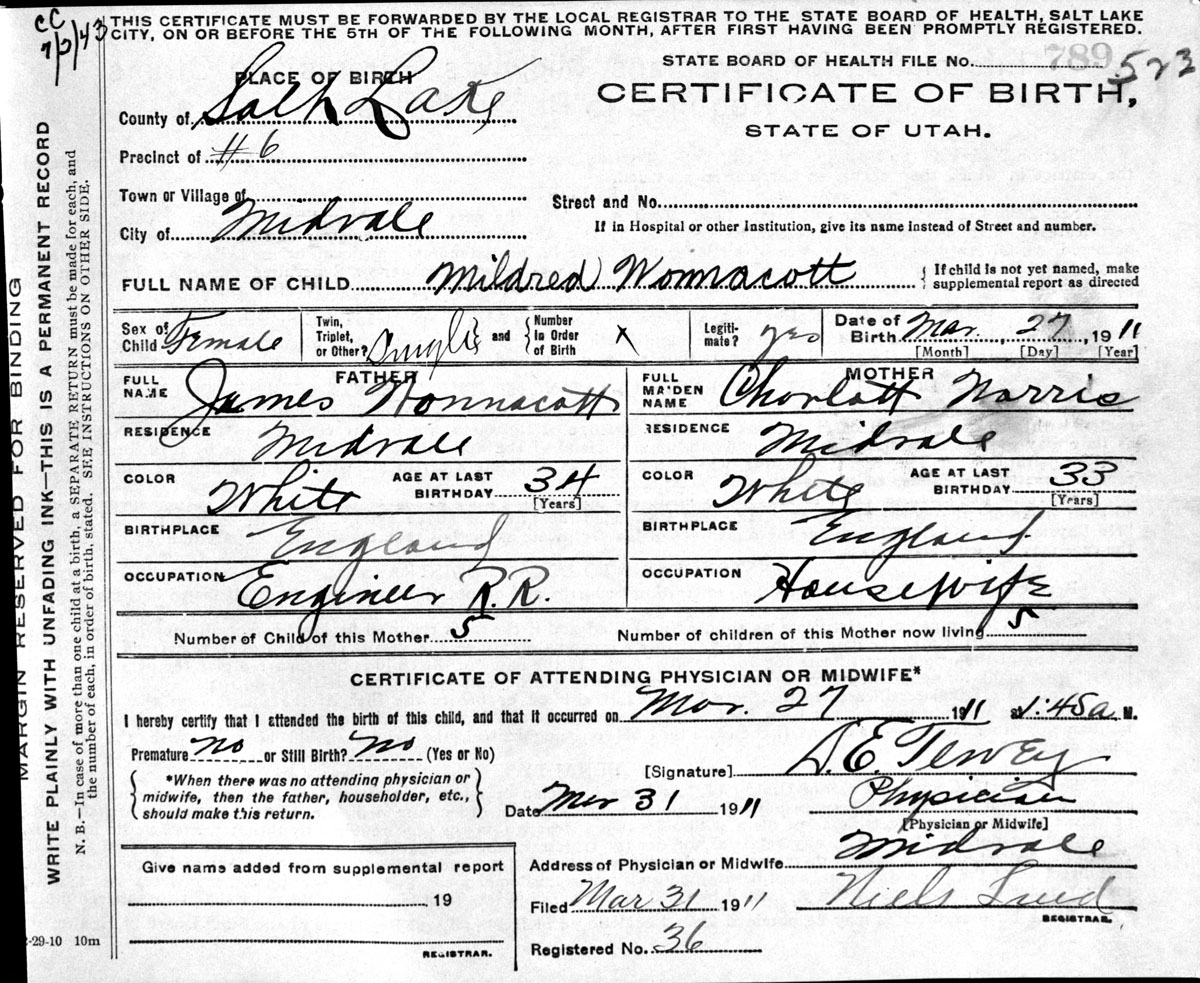 CC
7/2/43
THIS CERTIFICATE MUST BE FORWARDED BY THE LOCAL REGISTRAR TO THE STATE BOARD OF HEALTH, SALT LAKE
CITY, ON OR BEFORE THE 5TH OF THE FOLLOWING MONTH, AFTER FIRST HAVING BEEN PROMPTLY REGISTERED.
STATE BOARD OF HEALTH FILE No. 789 523
PLACE OF BIRTH
CERTIFICATE OF BIRTH,
STATE OF UTAH.
County of Salt Lake
Precinct of #6
Town or Village of
Street and No.
City of Midvale
If in Hospital or other Institution, give its name instead of Street and number.
FULL NAME OF CHILD Mildred Wonnacott
If child is not yet named, make
supplemental report as directed
Sex of Child Female
Twin, Triplet, or Other? Single and Number In Order of Birth X
Legiti- mate? yes
Date of Birth Mar. 27, 1911
[Month] [Day] [Year]
FATHER
MOTHER
FULL NAME James Wonnacott
FULL MAIDEN NAME Chorlott Norris
RESIDENCE Midvale
RESIDENCE Midvale
COLOR White AGE AT LAST BIRTHDAY 34 [Years]
COLOR White AGE AT LAST BIRTHDAY 33 [Years]
BIRTHPLACE England
BIRTHPLACE England
OCCUPATION Engineer R.R.
OCCUPATION Housewife
Number of Child of this Mother 5
Number of children of this Mother now living 5
CERTIFICATE OF ATTENDING PHYSICIAN OR MIDWIFE*
I hereby certify that I attended the birth of this child, and that it occurred on Mar. 27 1911 at 1:45a M.
Premature no or Still Birth? no (Yes or No)
[Signature]
*When there was no attending physician or
midwife, then the father, householder, etc.,
should make this return.
Date Mar 31 1911
Physician
[Physician or Midwife]
Give name added from supplemental report
19
REGISTRAR.
Address of Physician or Midwife Midvale
Filed Mar 31 1911 Niels Lind
REGISTRAR.
Registered No. 36
-29-10 10m
MARGIN RESERVED FOR BINDING
WRITE PLAINLY WITH UNFADING INK—THIS IS A PERMANENT RECORD
N. B.—In case of more than one child at a birth, a SEPARATE RETURN must be made for each, and
the number of each, in order of birth, stated. SEE INSTRUCTIONS ON OTHER SIDE.